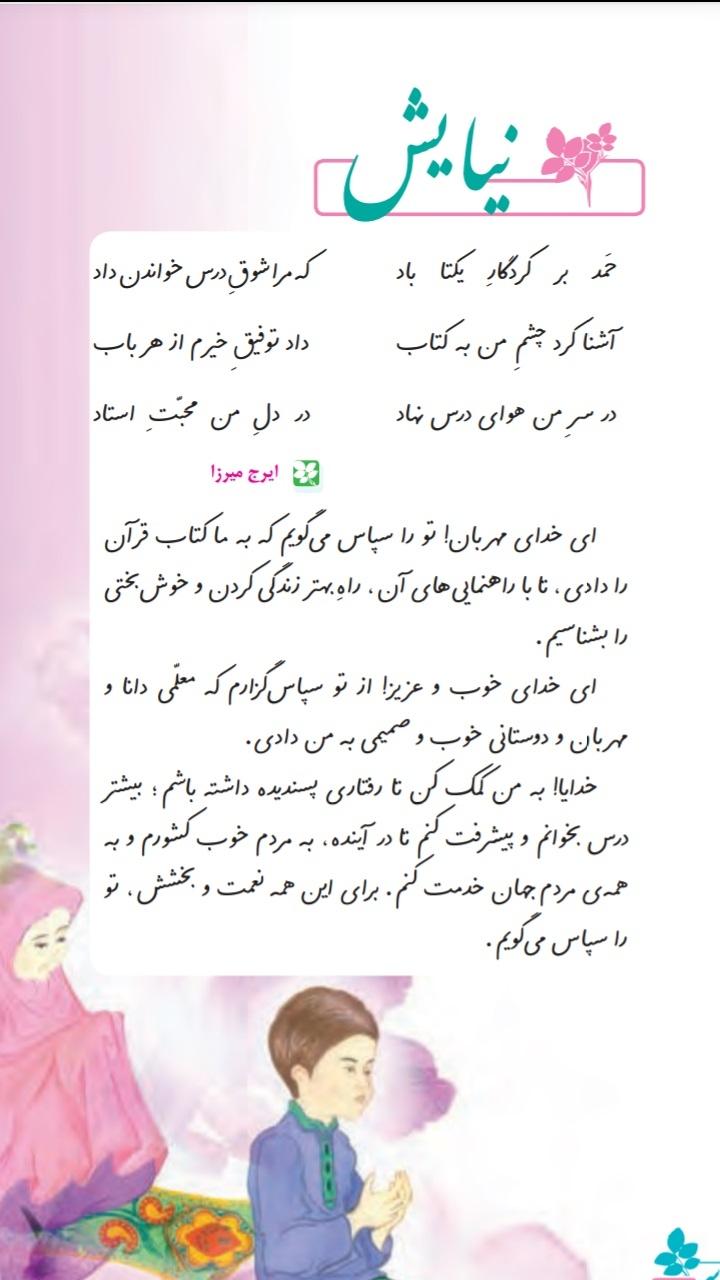 نیایش
حَمد بر کردگارِ یکتا باد که مرا شوقِ درس خواندن داد
آشنا کرد چشمِ من به کتاب داد توفیقِ خیرم از هر باب
در سرِ من هوای درس نهاد در دلِ من محبّتِ استاد
ایرج میرزا
ای خدای مهربان! تو را سپاس می‌گویم که به ما کتاب قرآن
را دادی، تا با راهنمایی‌های آن، راهِ بهتر زندگی کردن و خوش‌بختی
را بشناسیم.
ای خدای خوب و عزیز! از تو سپاس‌گزارم که معلّمی دانا و
مهربان و دوستانی خوب و صمیمی به من دادی.
خدایا! به من کمک کن تا رفتاری پسندیده داشته باشم؛ بیشتر
درس بخوانم و پیشرفت کنم تا در آینده، به مردم خوب کشورم و به
همه‌ی مردم جهان خدمت کنم. برای این همه نعمت و بخشش، تو
را سپاس می‌گویم.